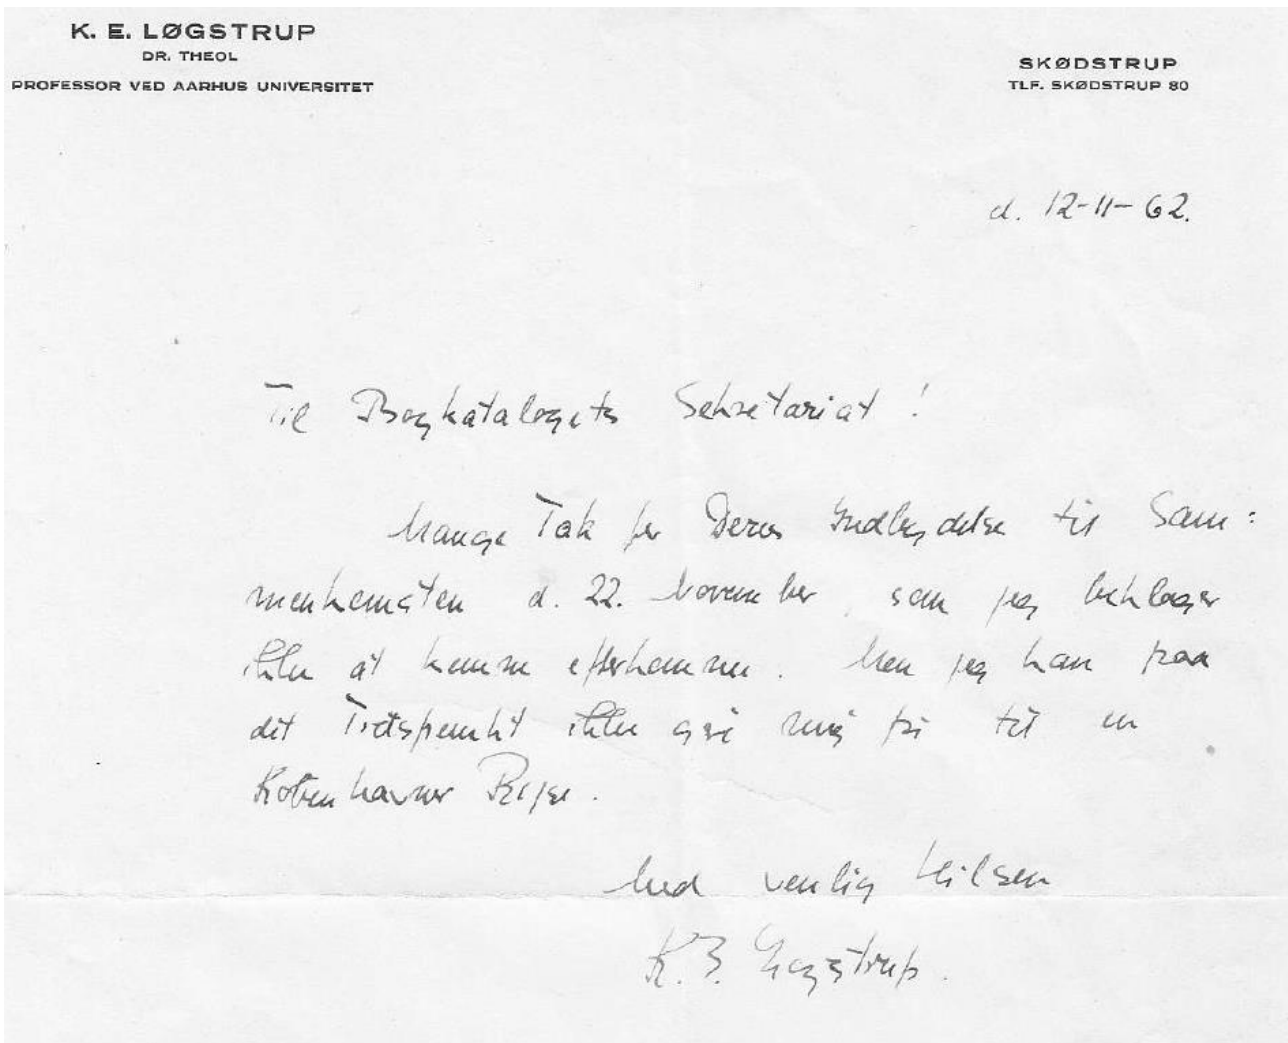 K. E. LØGSTRUP
DR. THEOL
PROFESSOR VED AARHUS UNIVERSITET
SKØDSTRUP
TLF. SKØDSTRUP 80
d. 12-11-62.
Til Bogkatalogets Sekretariat!
Mange Tak for Deres Indbydelse til Sam=
menkomsten d. 22. November, som jeg beklager
ikke at kunne efterkomme. Men jeg kan paa
det Tidspunkt ikke gøre mig fri til en
Københavner Rejse.
Med venlig Hilsen
K. E. Løgstrup.